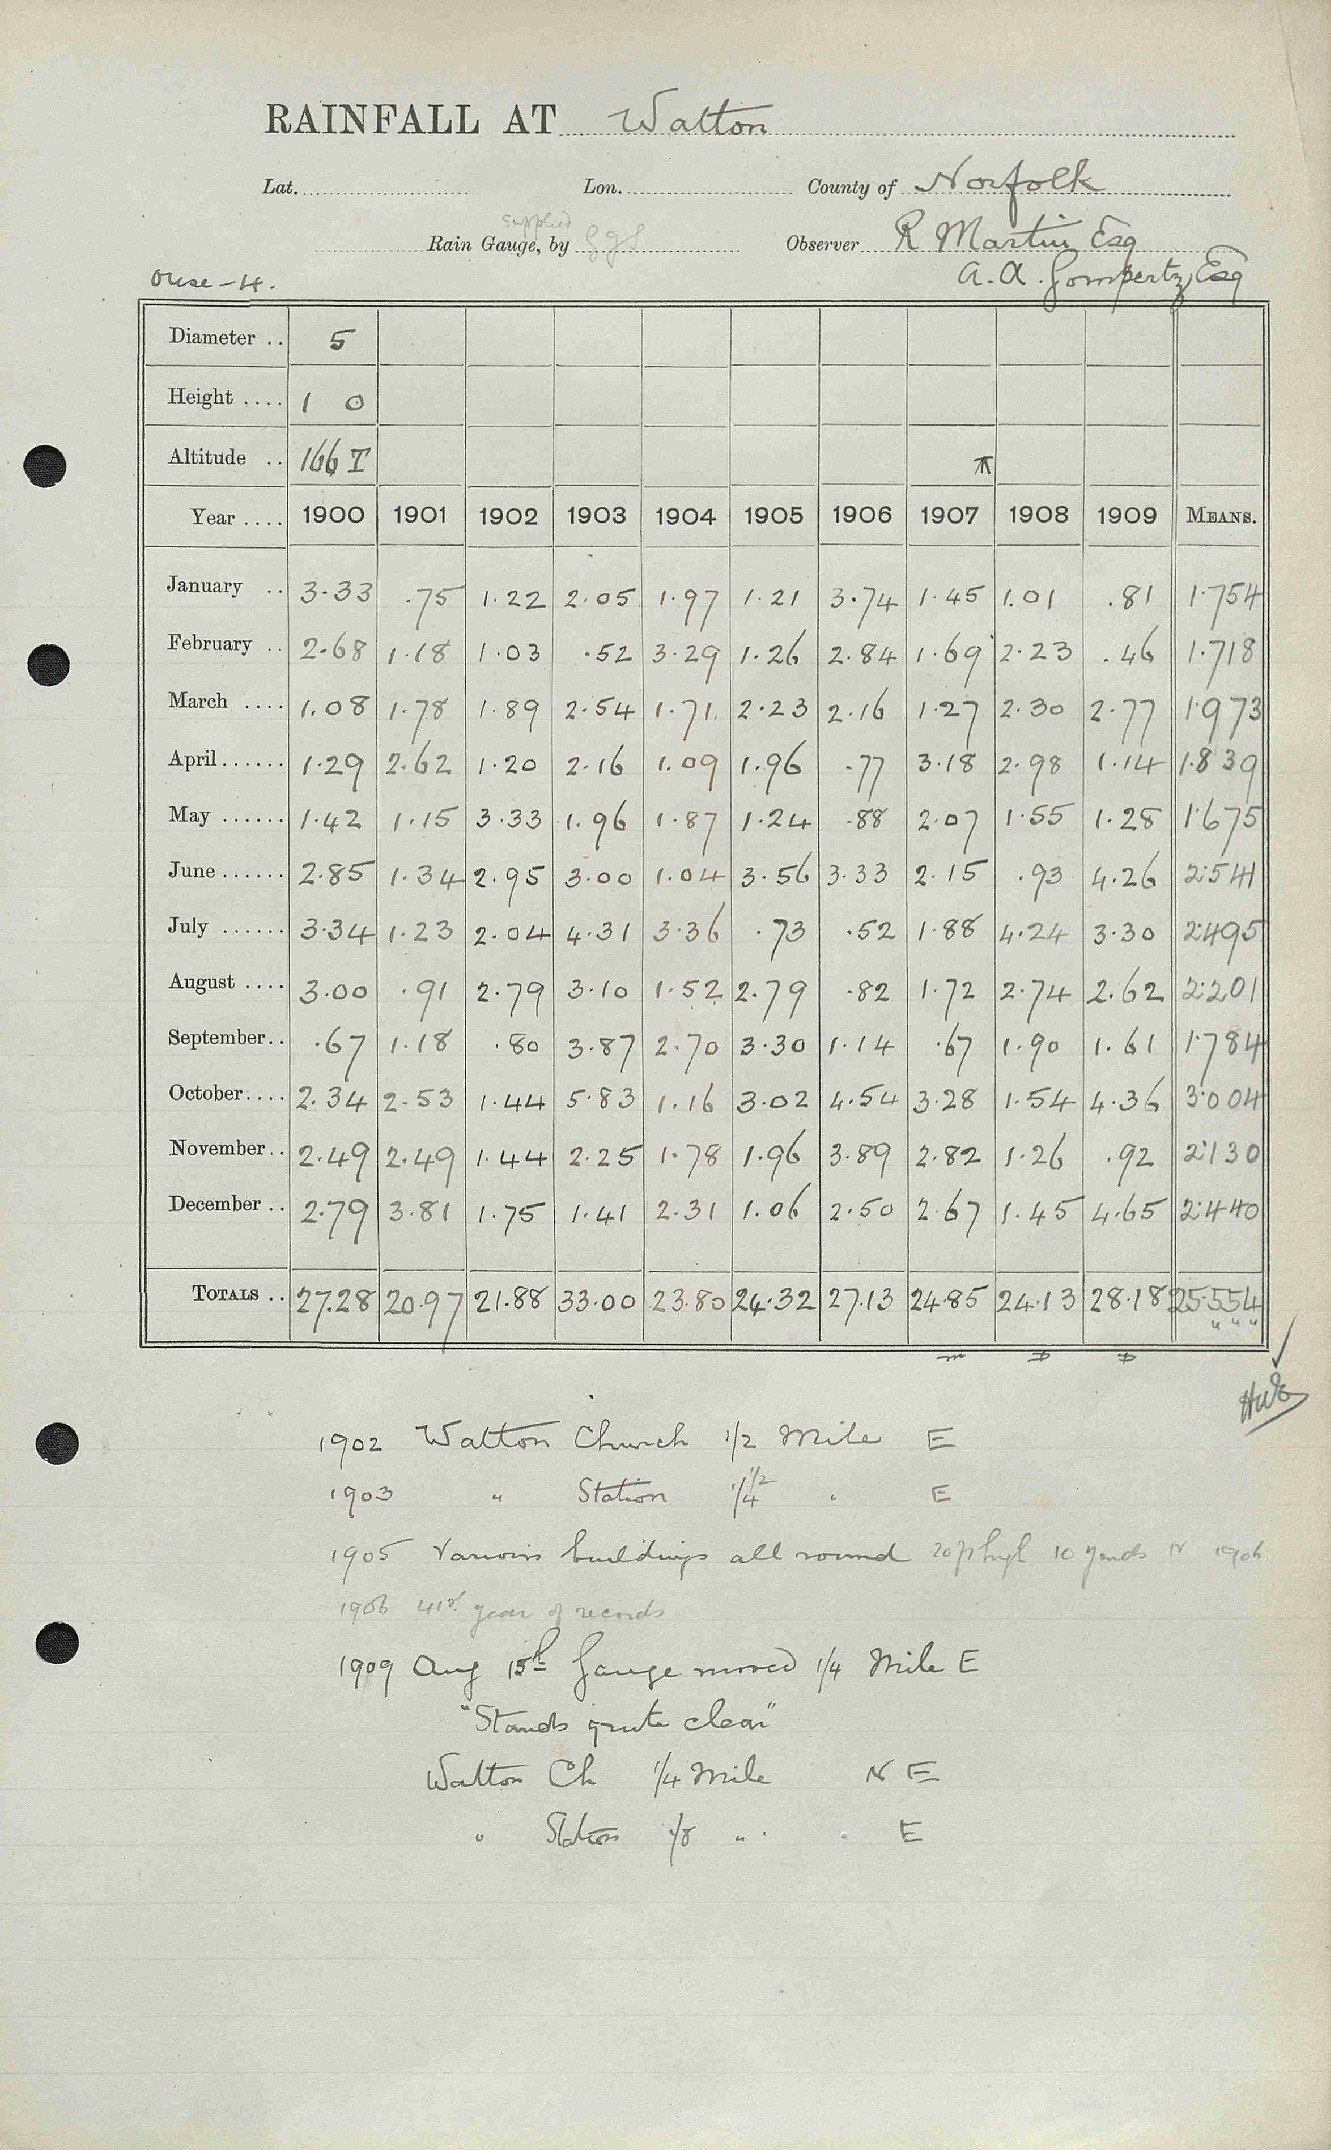 RAINFALL AT Watton
Lat. Lon. County of Norfolk
supplied
Rain Gauge, by Observer R Martin Esq
Ouse - 4. A. A. Gompertz, Esq
Diameter .. 5
Height .... 1 0
Altitude .. 166 T
Year .... 1900 1901 1902 1903 1904 1905 1906 1907 1908 1909 MEANS.
January .. 3.33 .75 1.22 2.05 1.97 1.21 3.74 1.45 1.01 .81 1.754
February .. 2.68 1.18 1.03 .52 3.29 1.26 2.84 1.69 2.23 .46 1.718
March .... 1.08 1.78 1.89 2.54 1.71 2.23 2.16 1.27 2.30 2.77 1.973
April ...... 1.29 2.62 1.20 2.16 1.09 1.96 .77 3.18 2.98 1.14 1.839
May ...... 1.42 1.15 3.33 1.96 1.87 1.24 .88 2.07 1.55 1.28 1.675
June ...... 2.85 1.34 2.95 3.00 1.04 3.56 3.33 2.15 .93 4.26 2.541
July ...... 3.34 1.23 2.04 4.31 3.36 .73 .52 1.88 4.24 3.30 2.495
August .... 3.00 .91 2.79 3.10 1.52 2.79 .82 1.72 2.74 2.62 2.201
September.. .67 1.18 .80 3.87 2.70 3.30 1.14 .67 1.90 1.61 1.784
October.... 2.34 2.53 1.44 5.83 1.16 3.02 4.54 3.28 1.54 4.36 3.004
November.. 2.49 2.49 1.44 2.25 1.78 1.96 3.89 2.82 1.26 .92 2.130
December .. 2.79 3.81 1.75 1.41 2.31 1.06 2.50 2.67 1.45 4.65 2.440
TOTALS .. 27.28 20.97 21.88 33.00 23.80 24.32 27.13 24.85 24.13 28.18 25.554
" " "
1902 Watton Church 1/2 Mile E
1903 " Station 1/4 " E
1905 Various buildings all round 20 ft high 10 yards 1906
1906 41st year of records
1909 Aug 15th Gauge moved 1/4 Mile E
"Stands quite clear"
Watton Ch 1/4 Mile N E
" Station 1/8 " E